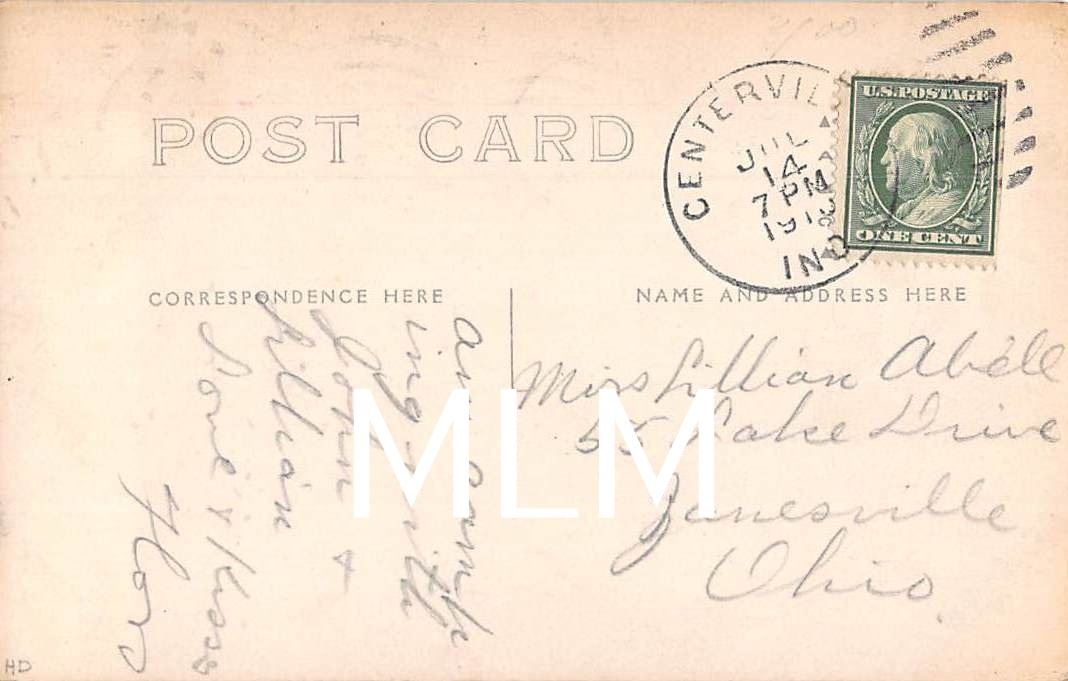 POST CARD
CENTERVIL
JUL
14
7 PM
191
IND
U.S. POSTAGE
ONE CENT
CORRESPONDENCE HERE
NAME AND ADDRESS HERE
am camp
ing with
Lillian
Love & Kisses
Miss Lillian Abell
55 Lake Drive
Zanesville
Ohio
MLM
HD